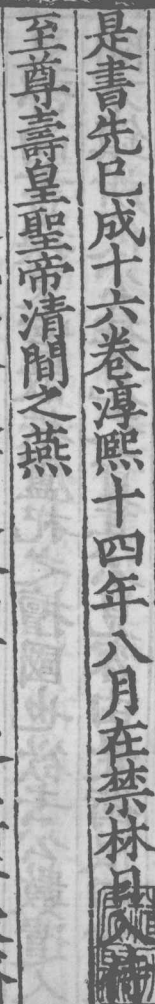 是書先已成十六卷淳熙十四年八月在禁林日
至尊壽皇聖帝清閒之燕